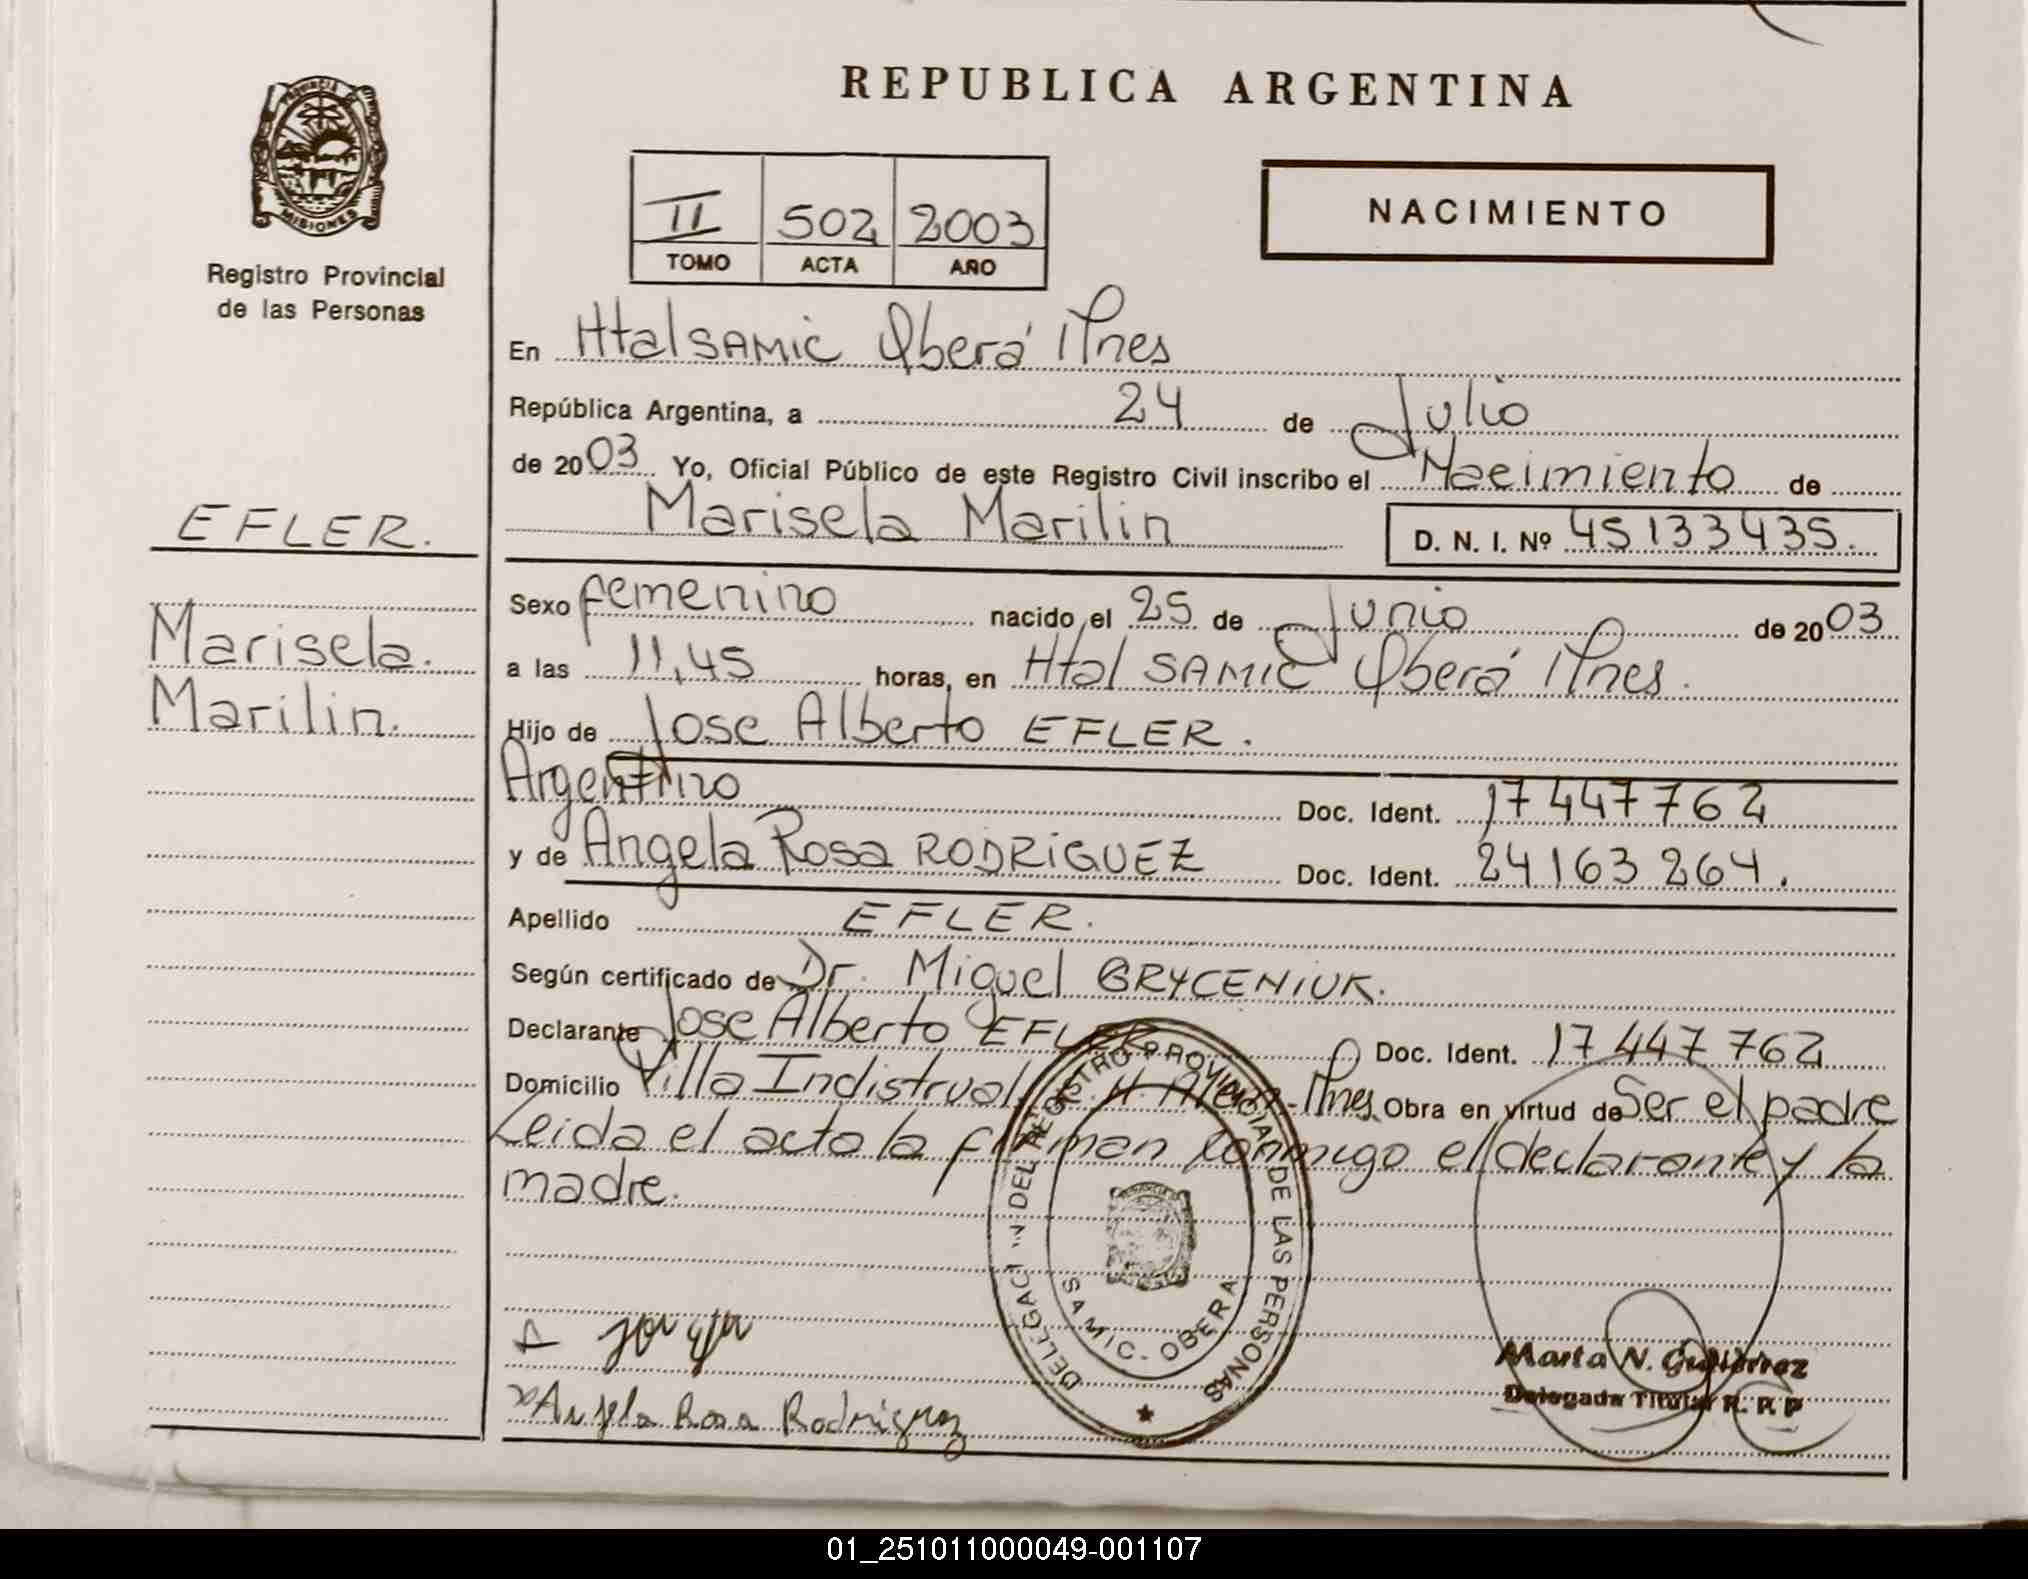 REPUBLICA ARGENTINA
PROVINCIA DE
MISIONES
Registro Provincial
de las Personas
II 502 2003
TOMO ACTA AÑO
NACIMIENTO
En Htal SAMIC Oberá Mnes
República Argentina, a 24 de Julio
de 2003 Yo, Oficial Público de este Registro Civil inscribo el Nacimiento de
Marisela Marilin D. N. I. Nº 45133435.
EFLER.
Marisela.
Marilin.
Sexo femenino nacido el 25 de Junio de 2003
a las 11,45 horas, en Htal SAMIC Oberá Mnes.
Hijo de Jose Alberto EFLER.
Argentino Doc. Ident. 17447762
y de Angela Rosa RODRIGUEZ Doc. Ident. 24163264.
Apellido EFLER.
Según certificado de Dr. Miguel GRYCENIUK.
Declarante Jose Alberto EFLER Doc. Ident. 17447762
Domicilio Villa Indistrual, L. H. Alem - Mnes. Obra en virtud de Ser el padre
Leida el acta la firman conmigo el declarante y la
madre.
DELEGACI N DEL REGISTRO PROVINCIAL DE LAS PERSONAS
SAMIC - OBERA
Marta N. Gutierrez
Delegada Titular R. P. P
Angela Rosa Rodriguez
01_251011000049-001107